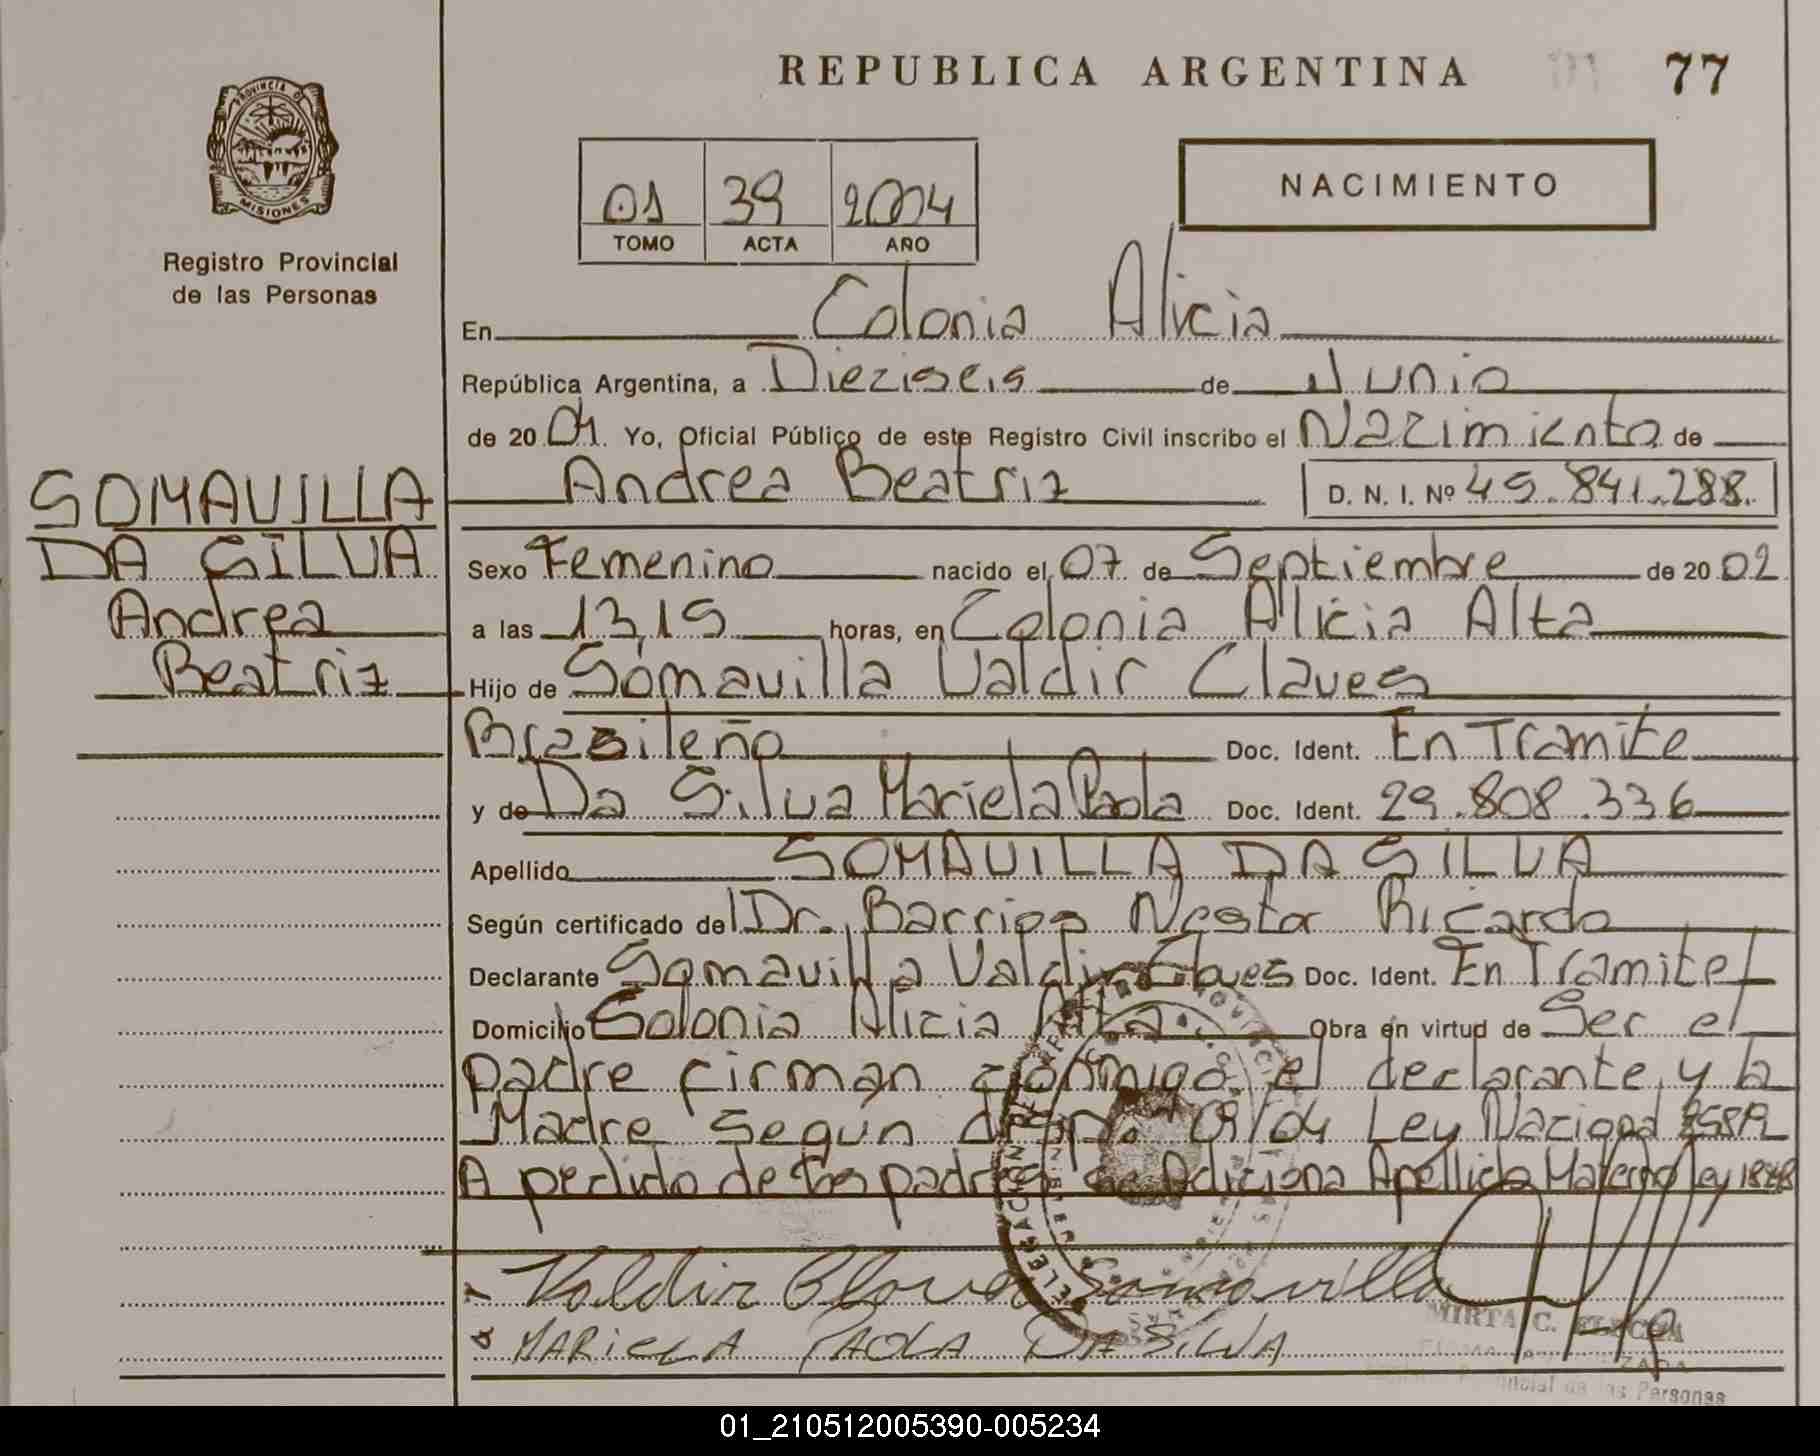 REPUBLICA ARGENTINA 77
PROVINCIA DE
MISIONES
Registro Provincial
de las Personas
01 39 2004
TOMO ACTA AÑO
NACIMIENTO
En Colonia Alicia
República Argentina, a Dieciseis de Junio
de 20 04. Yo, Oficial Público de este Registro Civil inscribo el Nacimiento de
Andrea Beatriz D. N. I. Nº 45.841.288.
SOMAVILLA
DA SILVA
Andrea
Beatriz
Sexo Femenino nacido el 07 de Septiembre de 20 02
a las 13,15 horas, en Colonia Alicia Alta
Hijo de Somavilla Valdir Claves
Brasileño Doc. Ident. En Tramite
y de Da Silva Mariela Paola Doc. Ident. 29.808.336
Apellido SOMAVILLA DA SILVA
Según certificado del Dr. Barrios Nestor Ricardo
Declarante Somavilla Valdir Claves Doc. Ident. En Tramite
Domicilio Colonia Alicia Alta Obra en virtud de Ser el
padre firman conmigo el declarante y la
Madre según 09/04 Ley Nacional
A pedido de los padres se Adiciona Apellido Materno Ley
Valdir Claves Somavilla
MARIELA PAOLA DA SILVA
MIRTA C.
Provincial de las Personas
01_210512005390-005234